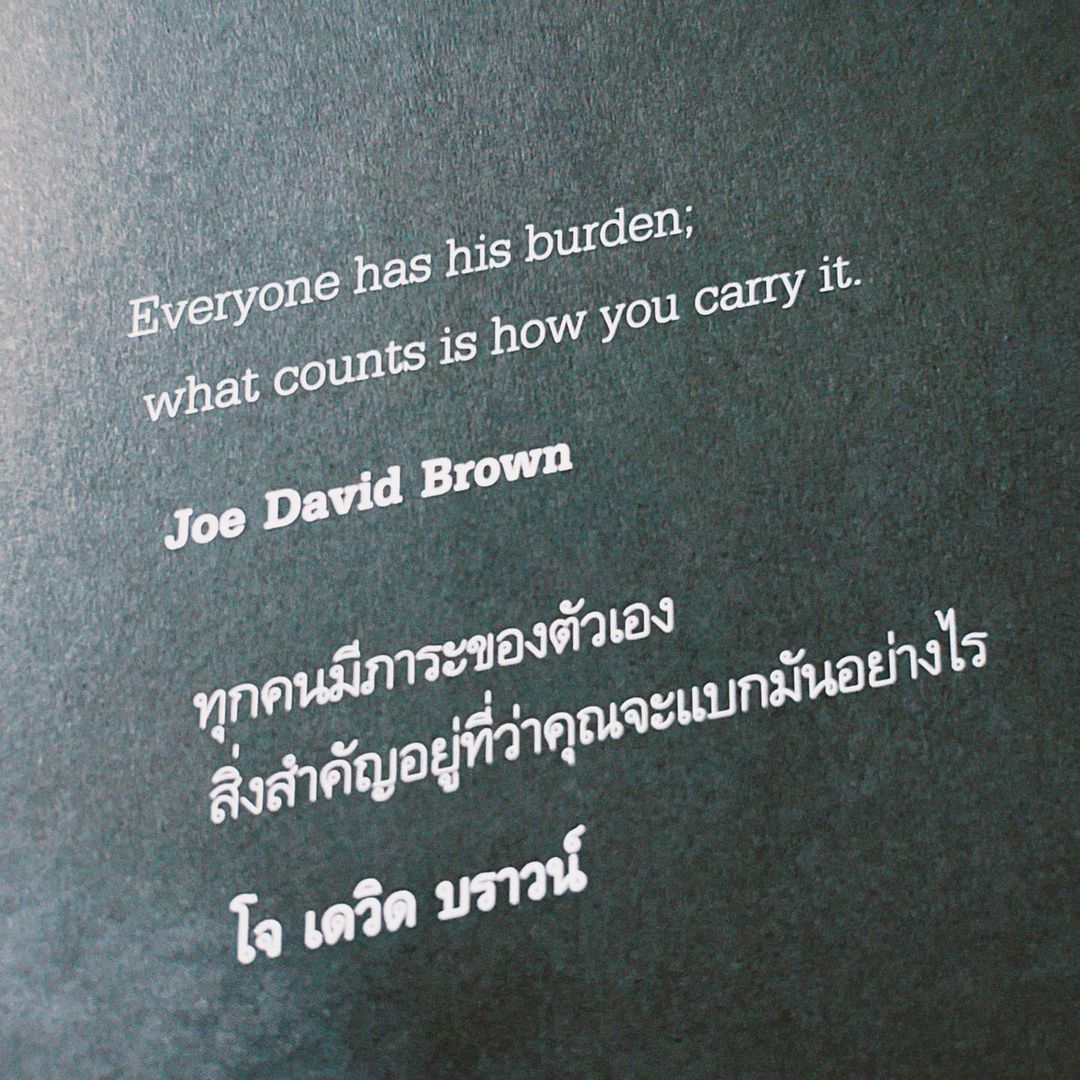 Everyone has his burden;
what counts is how you carry it.
Joe David Brown
ทุกคนมีภาระของตัวเอง
สิ่งสำคัญอยู่ที่ว่าคุณจะแบกมันอย่างไร
โจ เดวิด บราวน์